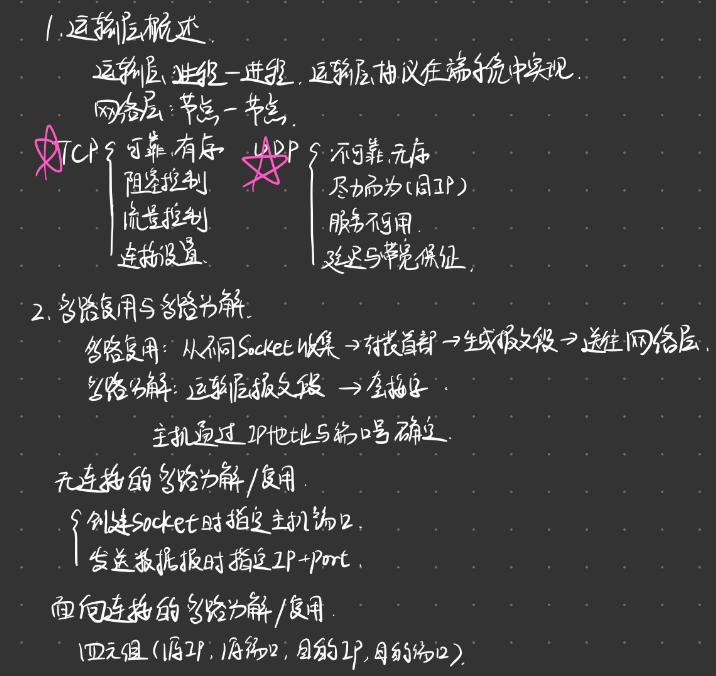 1. 运输层概述.
运输层: 进程—进程. 运输层协议在端系统中实现.
网络层: 节点—节点.
TCP { 可靠.有序 UDP { 不可靠.无序
阻塞控制 尽力而为(同IP)
流量控制 服务不可用
连接设置. 延迟与带宽保证.
2. 多路复用与多路分解.
多路复用: 从不同Socket收集→封装首部→生成报文段→送往网络层.
多路分解: 运输层报文段 → 套接字.
主机通过IP地址与端口号确定.
无连接的多路分解/复用.
{ 创建Socket时指定主机端口.
发送数据报时指定IP+port.
面向连接的多路分解/复用.
四元组(源IP, 源端口, 目的IP, 目的端口).